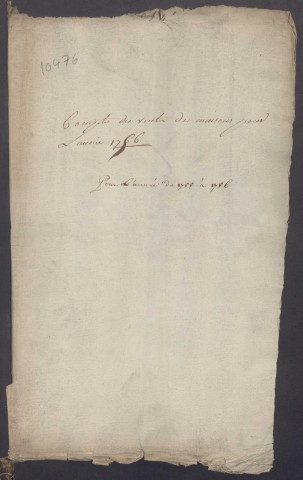 10476
Compte des rentes des maisons pour
L'année 1756
Pour L'année de 1755 à 1756